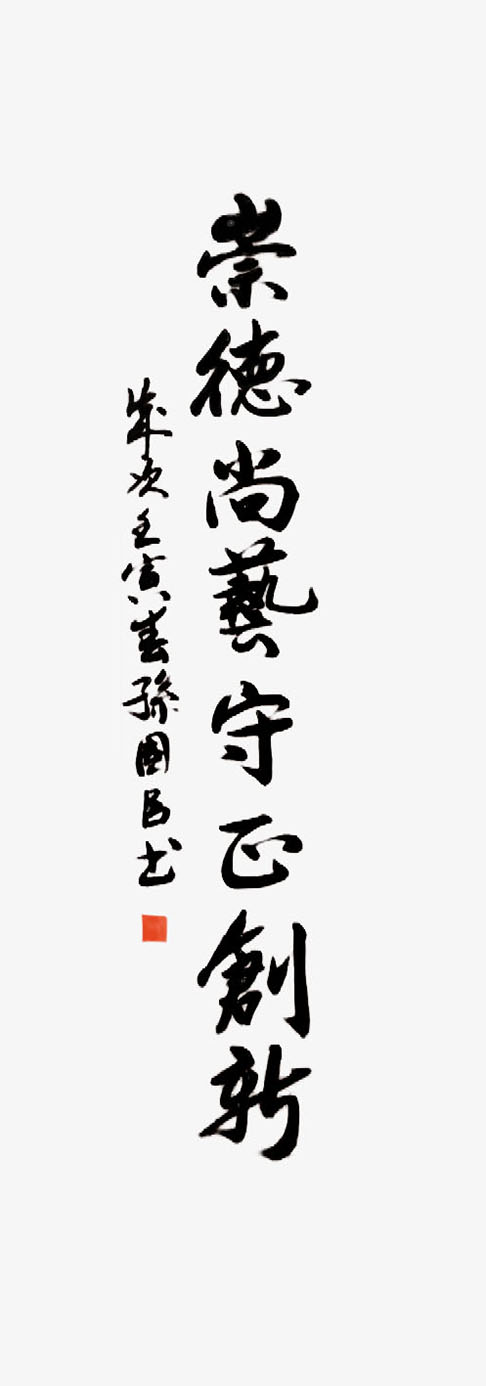 崇德尚藝守正創新
歲次壬寅春孫國昌书